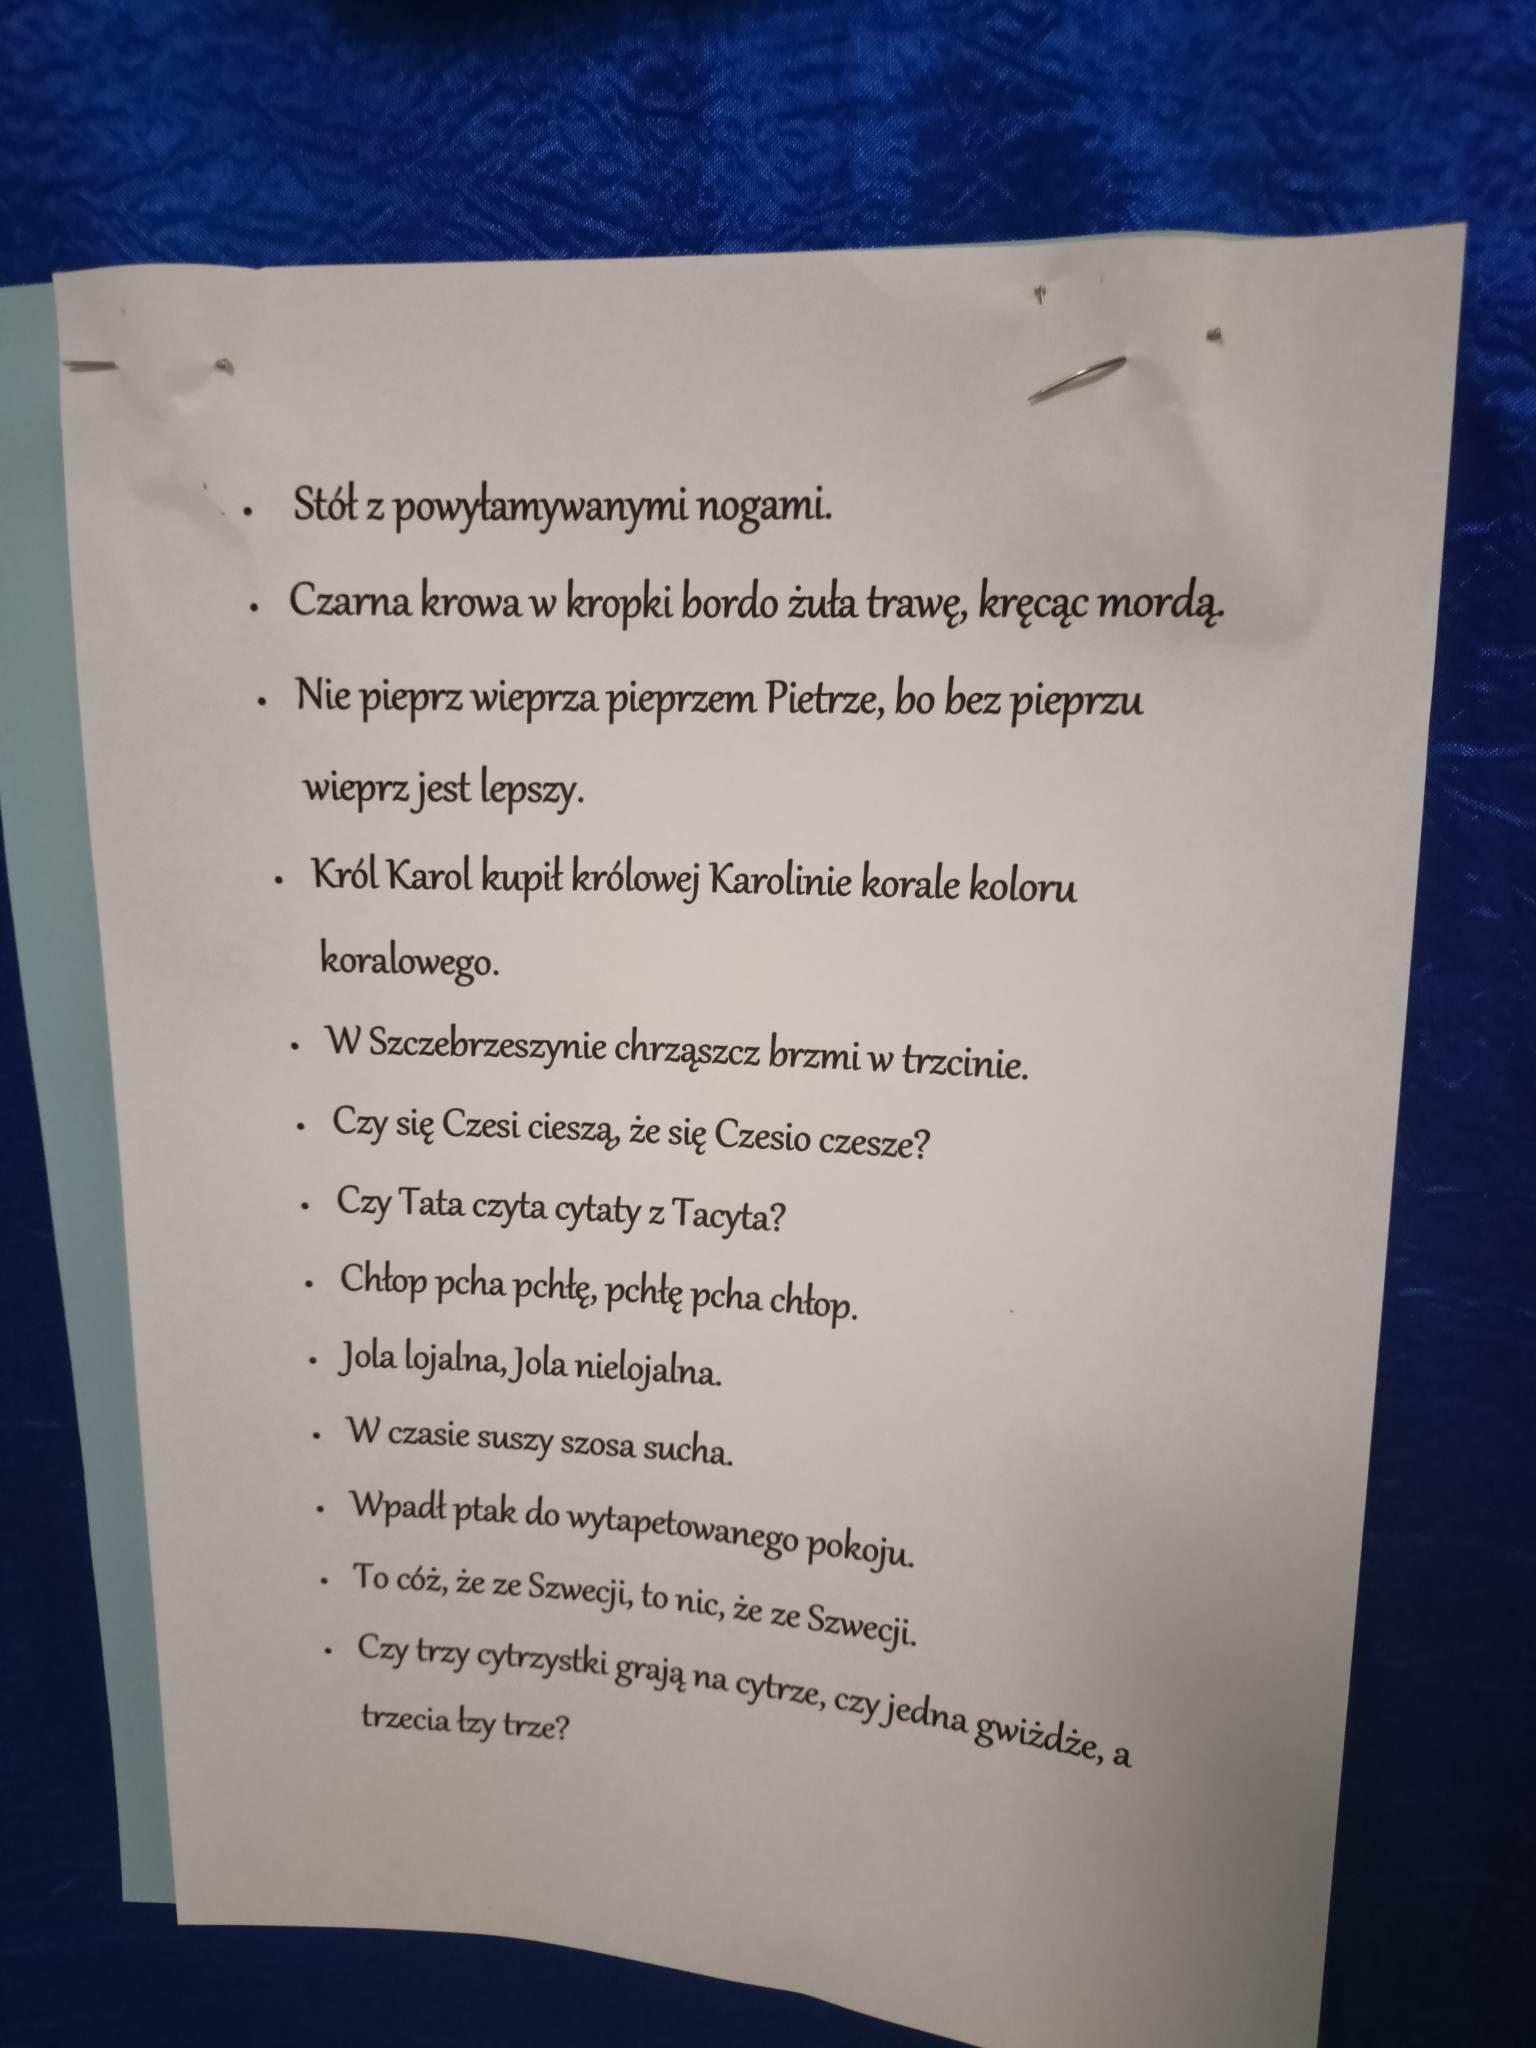 • Stół z powyłamywanymi nogami.
• Czarna krowa w kropki bordo żuła trawę, kręcąc mordą.
• Nie pieprz wieprza pieprzem Pietrze, bo bez pieprzu
wieprz jest lepszy.
• Król Karol kupił królowej Karolinie korale koloru
koralowego.
• W Szczebrzeszynie chrząszcz brzmi w trzcinie.
• Czy się Czesi cieszą, że się Czesio czesze?
• Czy Tata czyta cytaty z Tacyta?
• Chłop pcha pchłę, pchłę pcha chłop.
• Jola lojalna, Jola nielojalna.
• W czasie suszy szosa sucha.
• Wpadł ptak do wytapetowanego pokoju.
• To cóż, że ze Szwecji, to nic, że ze Szwecji.
• Czy trzy cytrzystki grają na cytrze, czy jedna gwiżdże, a
trzecia łzy trze?